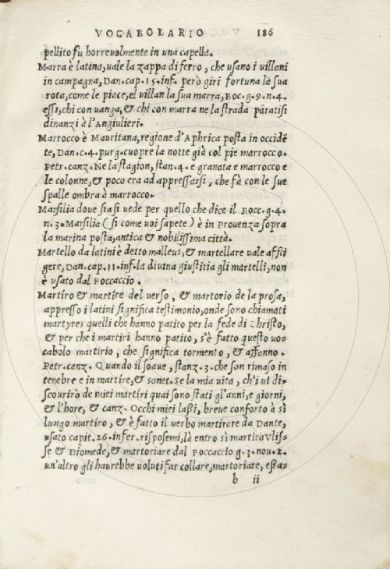 VOCABOLARIO 186
pellito fu horrevolmente in una capella.
Marra è latina, vale la zappa di ferro, che usano i villani
in campagna, Dan. cap. 15. inf. però giri fortuna la sua
rota, come le piace, e'l villan la sua marra, Boc. g. 9. n. 4.
essi, chi con vanga, & chi con marra ne la strada paratisi
dinanzi à l'Angiulieri.
Marrocco è Mauritana, regione d'Aphrica posta in occidē
te, Dan. c. 4. purg. cuopre la notte già col piè marrocco.
Petr. canz. Ne la stagion, stan. 4. e granata e marrocco e
le colonne, & poco era ad appressarsi, che fà con le sue
spalle ombra è marrocco.
Marsilia dove sia si vede per quello che dice il Bocc. g. 4.
n. 3. Marsilia (si come voi sapete) è in Provenza sopra
la marina posta, antica & nobilissima città.
Martello da latini è detto malleus, & martellare vale affli
gere, Dan. cap. 11. inf. la divina giustitia gli martelli, non
è usato dal Boccaccio.
Martiro & martire del verso, & martorio de la prosa,
appresso i latini significa testimonio, onde sono chiamati
martyres quelli che hanno patito per la fede di Christo,
& per che i martiri hanno patito, s'è fatto questo vo-
cabolo martirio, che significa tormento, & affanno.
Petr. canz. Quando il soave, stanz. 3. che son rimaso in
tenebre e in martire, & sonet. Se la mia vita, ch'i vi di-
scourirò de miei martiri quai sono stati gl'anni, e giorni,
& l'hore, & canz. Occhi miei lassi, breve conforto à sì
lungo martiro, & è fatto il verbo martirore da Dante,
usato capit. 26. infer. rispose mi, là entro si martira Ulis-
se & Diomede, & martoriare dal Boccaccio g. 3. nou. 2.
un'altro gli haurebbe voluti far collare, martoriare, essa-
b ii